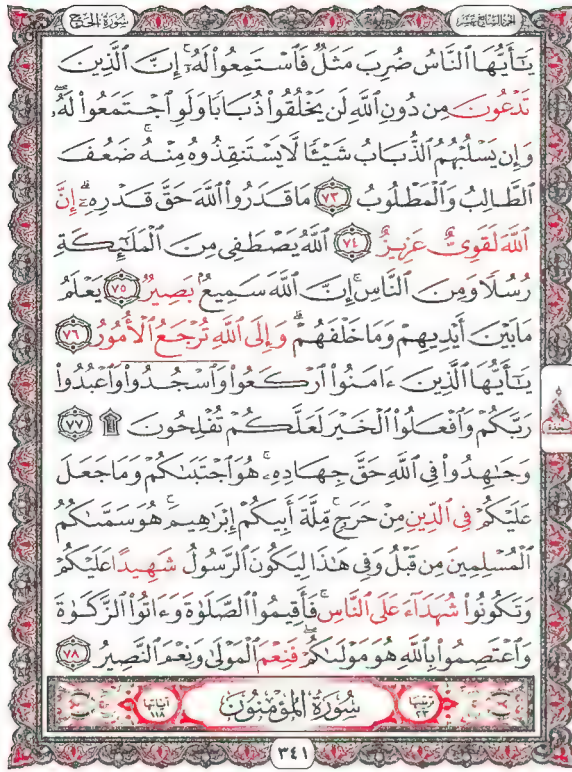 الجزء السابع عشر
سُورَةُ الحَجّ
يَـٰٓأَيُّهَا ٱلنَّاسُ ضُرِبَ مَثَلٌ فَٱسْتَمِعُوا۟ لَهُۥٓ ۚ إِنَّ ٱلَّذِينَ
تَدْعُونَ مِن دُونِ ٱللَّهِ لَن يَخْلُقُوا۟ ذُبَابًا وَلَوِ ٱجْتَمَعُوا۟ لَهُۥ ۖ
وَإِن يَسْلُبْهُمُ ٱلذُّبَابُ شَيْـًٔا لَّا يَسْتَنقِذُوهُ مِنْهُ ۚ ضَعُفَ
ٱلطَّالِبُ وَٱلْمَطْلُوبُ ٧٣ مَا قَدَرُوا۟ ٱللَّهَ حَقَّ قَدْرِهِۦٓ ۗ إِنَّ
ٱللَّهَ لَقَوِىٌّ عَزِيزٌ ٧٤ ٱللَّهُ يَصْطَفِى مِنَ ٱلْمَلَـٰٓئِكَةِ
رُسُلًا وَمِنَ ٱلنَّاسِ ۚ إِنَّ ٱللَّهَ سَمِيعٌۢ بَصِيرٌ ٧٥ يَعْلَمُ
مَا بَيْنَ أَيْدِيهِمْ وَمَا خَلْفَهُمْ ۗ وَإِلَى ٱللَّهِ تُرْجَعُ ٱلْأُمُورُ ٧٦
يَـٰٓأَيُّهَا ٱلَّذِينَ ءَامَنُوا۟ ٱرْكَعُوا۟ وَٱسْجُدُوا۟ وَٱعْبُدُوا۟
رَبَّكُمْ وَٱفْعَلُوا۟ ٱلْخَيْرَ لَعَلَّكُمْ تُفْلِحُونَ ۩ ٧٧
سجدة
وَجَـٰهِدُوا۟ فِى ٱللَّهِ حَقَّ جِهَادِهِۦ ۚ هُوَ ٱجْتَبَىٰكُمْ وَمَا جَعَلَ
عَلَيْكُمْ فِى ٱلدِّينِ مِنْ حَرَجٍ ۚ مِّلَّةَ أَبِيكُمْ إِبْرَٰهِيمَ ۚ هُوَ سَمَّىٰكُمُ
ٱلْمُسْلِمِينَ مِن قَبْلُ وَفِى هَـٰذَا لِيَكُونَ ٱلرَّسُولُ شَهِيدًا عَلَيْكُمْ
وَتَكُونُوا۟ شُهَدَآءَ عَلَى ٱلنَّاسِ ۚ فَأَقِيمُوا۟ ٱلصَّلَوٰةَ وَءَاتُوا۟ ٱلزَّكَوٰةَ
وَٱعْتَصِمُوا۟ بِٱللَّهِ هُوَ مَوْلَىٰكُمْ ۖ فَنِعْمَ ٱلْمَوْلَىٰ وَنِعْمَ ٱلنَّصِيرُ ٧٨
ترتيبها ٢٣
سُورَةُ المُؤْمِنُونَ
آياتها ١١٨
٣٤١